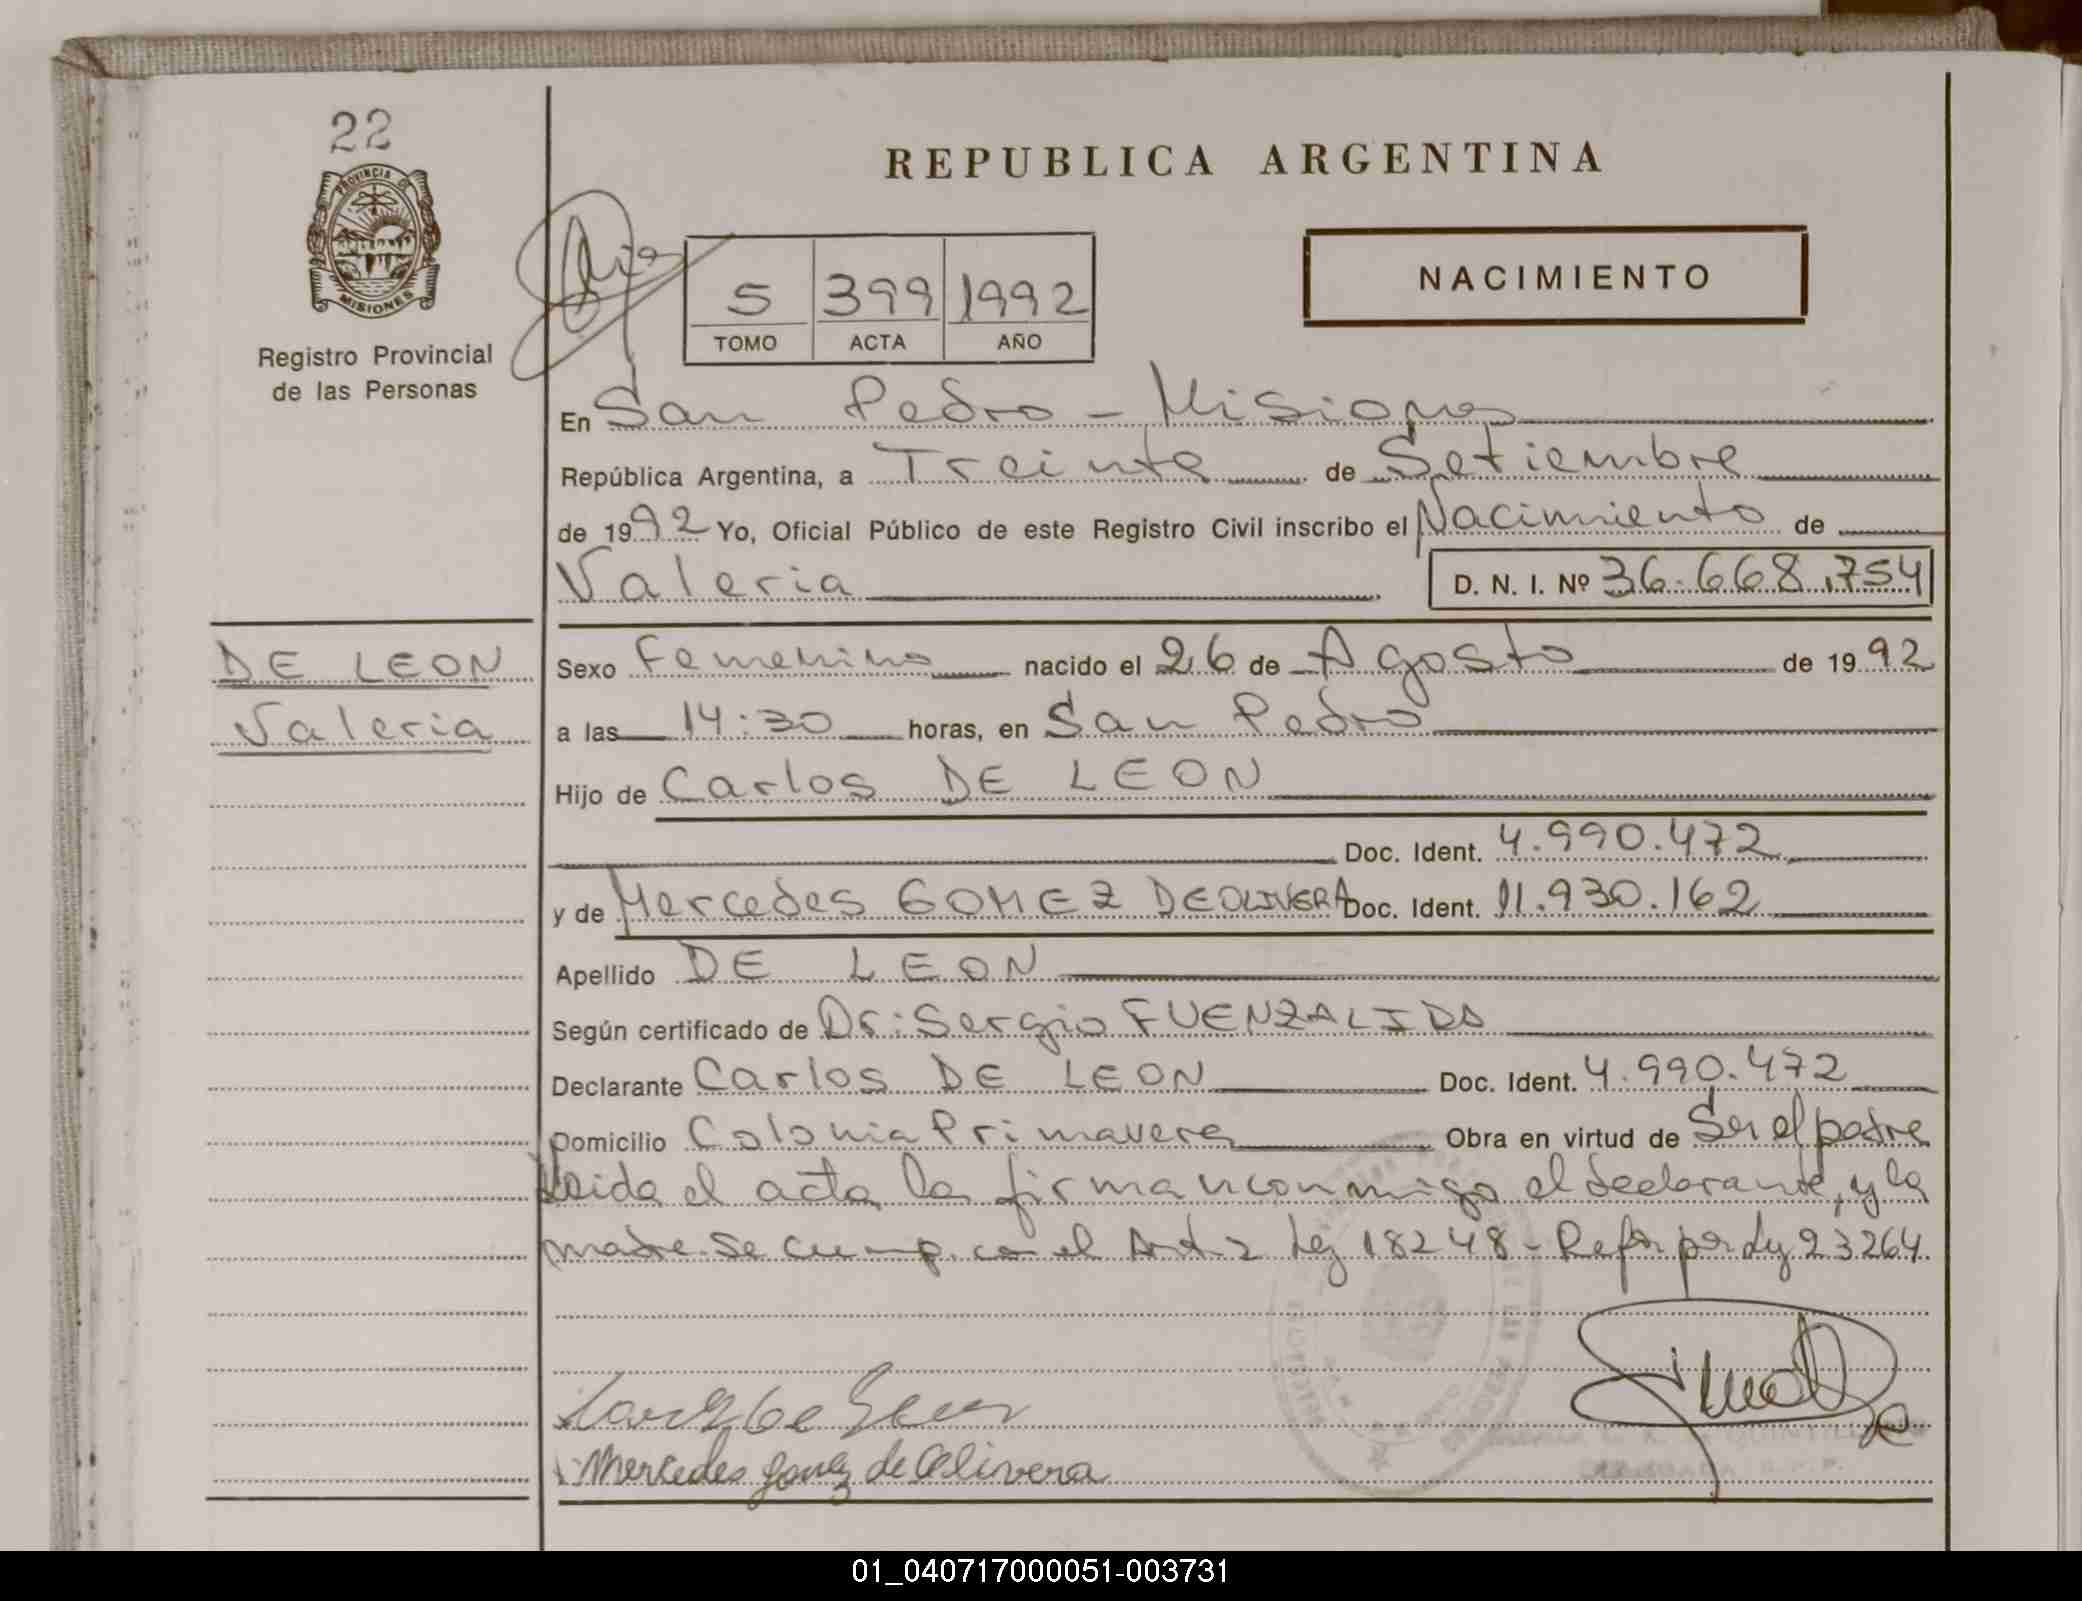 22
PROVINCIA DE
MISIONES
Registro Provincial
de las Personas
REPUBLICA ARGENTINA
NACIMIENTO
5 399 1992
TOMO ACTA AÑO
En San Pedro - Misiones
República Argentina, a Treinta de Setiembre
de 1992 Yo, Oficial Público de este Registro Civil inscribo el Nacimiento de
Valeria D. N. I. Nº 36.668.754
DE LEON
Valeria
Sexo Femenino nacido el 26 de Agosto de 1992
a las 14:30 horas, en San Pedro
Hijo de Carlos DE LEON
Doc. Ident. 4.990.472
y de Mercedes GOMEZ DEOLIVERA Doc. Ident. 11.930.162
Apellido DE LEON
Según certificado de Dr: Sergio FUENZALIDA
Declarante Carlos DE LEON Doc. Ident. 4.990.472
Domicilio Colonia Primavera Obra en virtud de Ser el padre
Leida el acta la firman conmigo el declarante, y la
madre. Se cump. con el Art. 2 Ley 18248 - Refor por Ley 23264.
Mercedes Gomez de Olivera
01_040717000051-003731